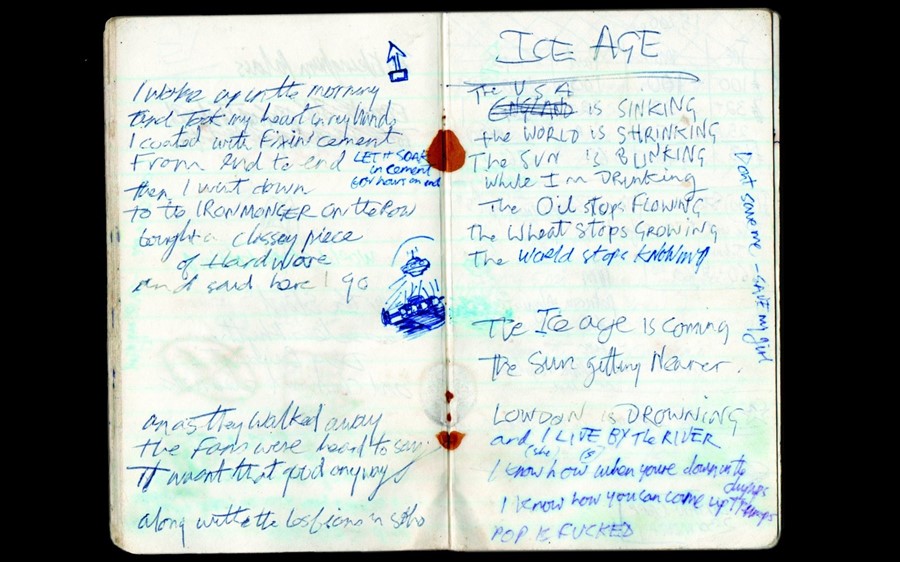 I woke up in the morning
And Took my heart in my hands
I coated with Fixin' cement
From end to end
LET IT SOAK
in cement
for hours on end
then I went down
to the IRONMONGER On the Row
bought a classy piece
of Hardware
and said here I go
an as they walked away
the Fans were heard to say
It wasnt that good anyway
along with the lesbians in soho
ICE AGE
The USA
ENGLAND IS SINKING
the WORLD IS SHRINKING
The SUN IS BLINKING
while I'm DRINKING
The Oil stops FLOWING
The Wheat stops GROWING
The World stops KNOWING
Dont save me - SAVE my girl
The Ice age is coming
The Sun getting Nearer.
LONDON is DROWNING
and I LIVE BY the RIVER
(she) (is)
I know how when youre down in the
dumps
I know how you can come up Trumps
POP IS FUCKED